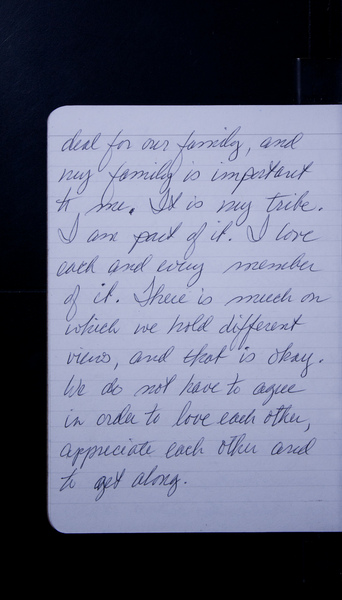 deal for our family, and
my family is important
to me. It is my tribe.
I am part of it. I love
each and every member
of it. There is much on
which we hold different
views, and that is okay.
We do not have to agree
in order to love each other,
appreciate each other and
to get along.